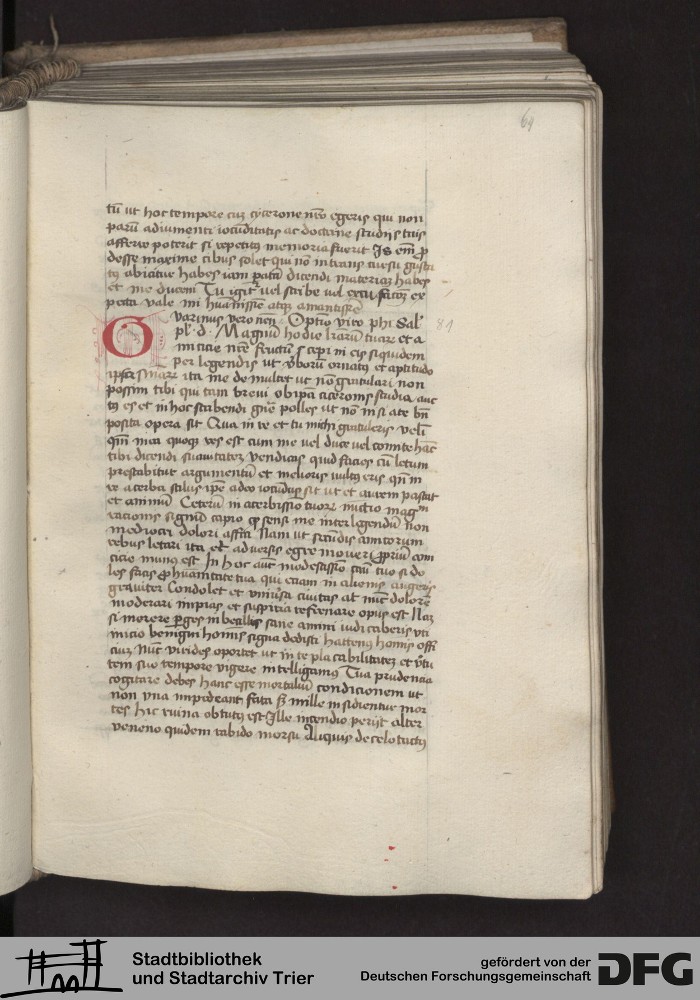 69
tū ut hoc tempore cuȝ cycerone nr̄o egeris qui non
parū adiumenti iocuditatis ac doctrine studiis tuis
afferre poterit si repetitꝯ memoria fuerit Is em̄ ꝓ
desse maxime cibus solet qui nō intrans
abicitur habes iam patri dicendi materiaȝ habes
et me ducem Tu igit vel scribe vel
pecta vale mi huāissime atqȝ amantissime
Guarinus veronen̄ . Optio viro phi Sal̄
pl̄ · d · Magnū hodie lr̄arū tuarȝ et a
micicie nr̄e fructū cepi in eis siquidem
per legendis ut v̄borū ornatꝯ et aptitudo
ita me demulcet ut nō gratulari non
possim tibi qui tam brevi obipa ciceronis studia auc
tꝯ es et in hoc scribendi gn̄e polles ut nō in si ate bn̄
posita opera sit Qua in re et tu michi gratuleris veli
qm̄ mea quoqȝ res est cum me vel duce vel comite hāc
tibi dicendi suavitateȝ vendicas quid facies cū letum
prestabitur argumentū et melioris vultꝯ eris qn̄ in
re acerba stilus ip̄e adeo iocūdus sit ut et aurem pascat
et animū Ceterū in acerbissīo tuorȝ nūcio magn̄
racionis signūd capio ꝙ sensi me inter legendū non
mediocri dolori affici Nam ut secūdis amicorum
rebus letari ita et adversis egre moveri ꝓpriū ami
cicie munus est In hoc aut̄ modestissīo tuo si do
les facis ꝓ huāitate tua qui etiam in alienis angeris
graviter Condolet et univ̄sa civitas at nūc dolorē
moderari impias et suspiria refrenare opus est Naȝ
si morere ꝑges imbecillis sane animi iudicaberis uti
inicio benigni homīs signa dedisti hactenꝯ homīs offi
ciuȝ nūc virides oportet ut in te placabilitateȝ et v̄tu
tem suo tempore vigere intelligamꝯ Tua prudencia
cogitare debes hanc esse mortaliū condicionem ut
non una impedeant fata sȝ mille insidientur mor
tes hic ruina obtutꝯ est Ille incendio perijt alter
veneno quidem rabido morsu Aliquis de celo tactꝯ
81
Stadtbibliothek
und Stadtarchiv Trier
gefördert von der
Deutschen Forschungsgemeinschaft
DFG